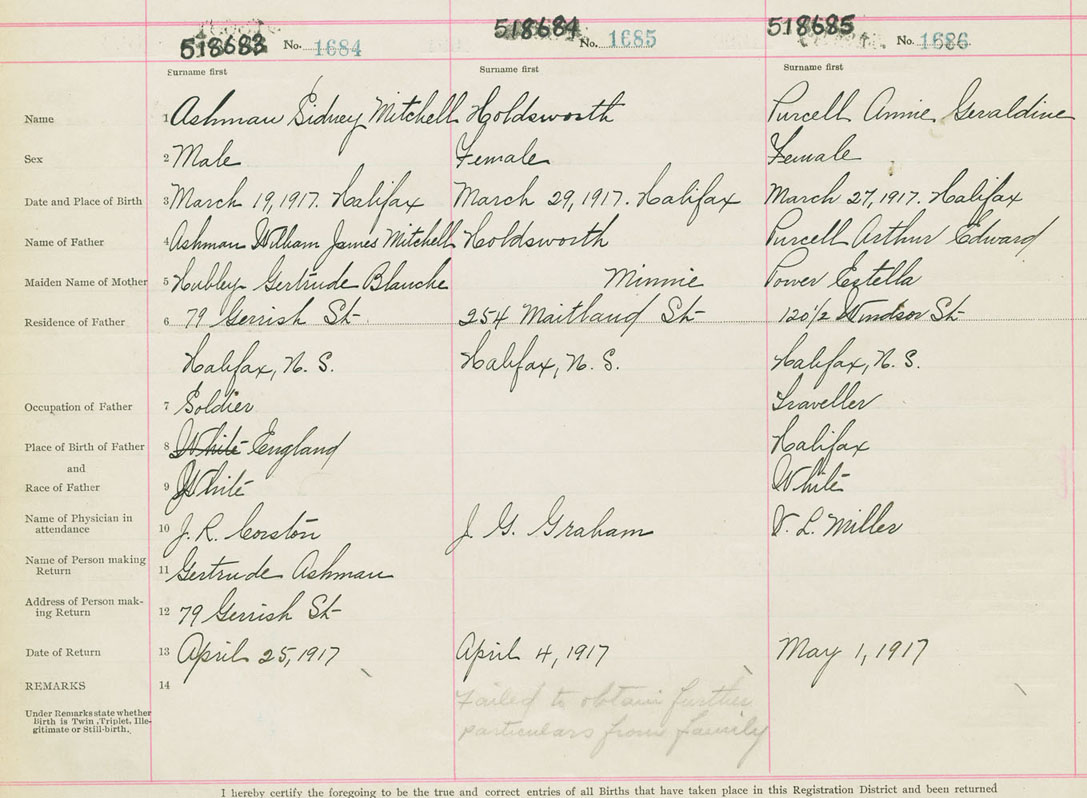 518683 No. 1684
518684 No. 1685
518685 No. 1686
Surname first Surname first Surname first
Name 1 Ashman Sidney Mitchell Holdsworth Purcell Annie Geraldine
Sex 2 Male Female Female
Date and Place of Birth 3 March 19, 1917. Halifax March 29, 1917. Halifax March 27, 1917. Halifax
Name of Father 4 Ashman William James Mitchell Holdsworth Purcell Arthur Edward
Maiden Name of Mother 5 Hubley Gertrude Blanche Minnie Power Estella
Residence of Father 6 79 Gerrish St 254 Maitland St 120 1/2 Windsor St
Halifax, N. S. Halifax, N. S. Halifax, N. S.
Occupation of Father 7 Soldier Traveller
Place of Birth of Father 8 White England Halifax
and
Race of Father 9 White White
Name of Physician in
attendance 10 J. R. Corston J. G. Graham V. L. Miller
Name of Person making
Return 11 Gertrude Ashman
Address of Person mak-
ing Return 12 79 Gerrish St
Date of Return 13 April 25, 1917 April 4, 1917 May 1, 1917
REMARKS 14 Failed to obtain further
particulars from family
Under Remarks state whether
Birth is Twin, Triplet, Ille-
gitimate or Still-birth.
I hereby certify the foregoing to be the true and correct entries of all Births that have taken place in this Registration District and been returned